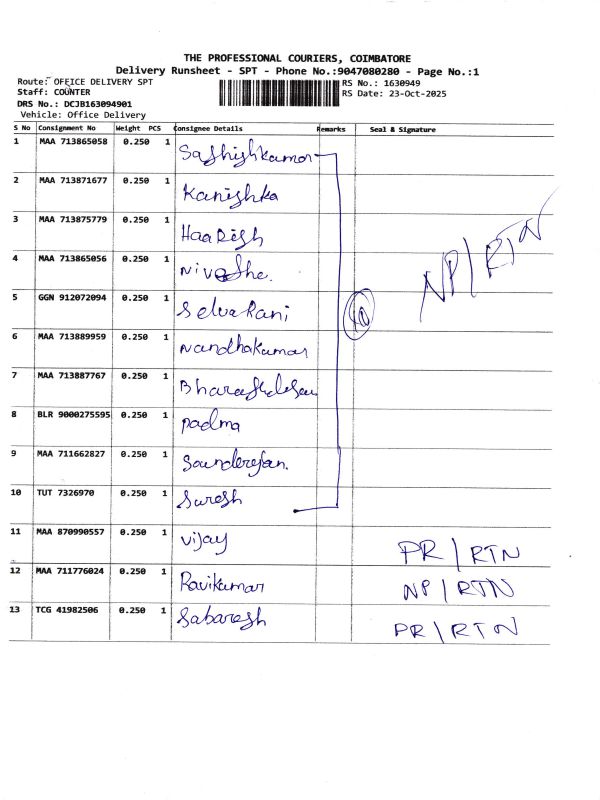 THE PROFESSIONAL COURIERS, COIMBATORE
Delivery Runsheet - SPT - Phone No.:9047080280 - Page No.:1
Route: OFFICE DELIVERY SPT
Staff: COUNTER
DRS No.: DCJB163094901
Vehicle: Office Delivery
RS No.: 1630949
RS Date: 23-Oct-2025
S No Consignment No Weight PCS Consignee Details Remarks Seal & Signature
1 MAA 713865058 0.250 1 Sathishkumar
2 MAA 713871677 0.250 1 Kanishka
3 MAA 713875779 0.250 1 HaaRish
4 MAA 713865056 0.250 1
5 GGN 912072094 0.250 1 SelvaRani
NP/RTN
10
6 MAA 713889959 0.250 1 Nandhakumar
7 MAA 713887767 0.250 1
8 BLR 9000275595 0.250 1 padma
9 MAA 711662827 0.250 1
10 TUT 7326970 0.250 1 Suresh
11 MAA 870990557 0.250 1 Vijay PR/RTN
12 MAA 711776024 0.250 1 Ravikumar NP/RTN
13 TCG 41982506 0.250 1 Sabaresh PR/RTN